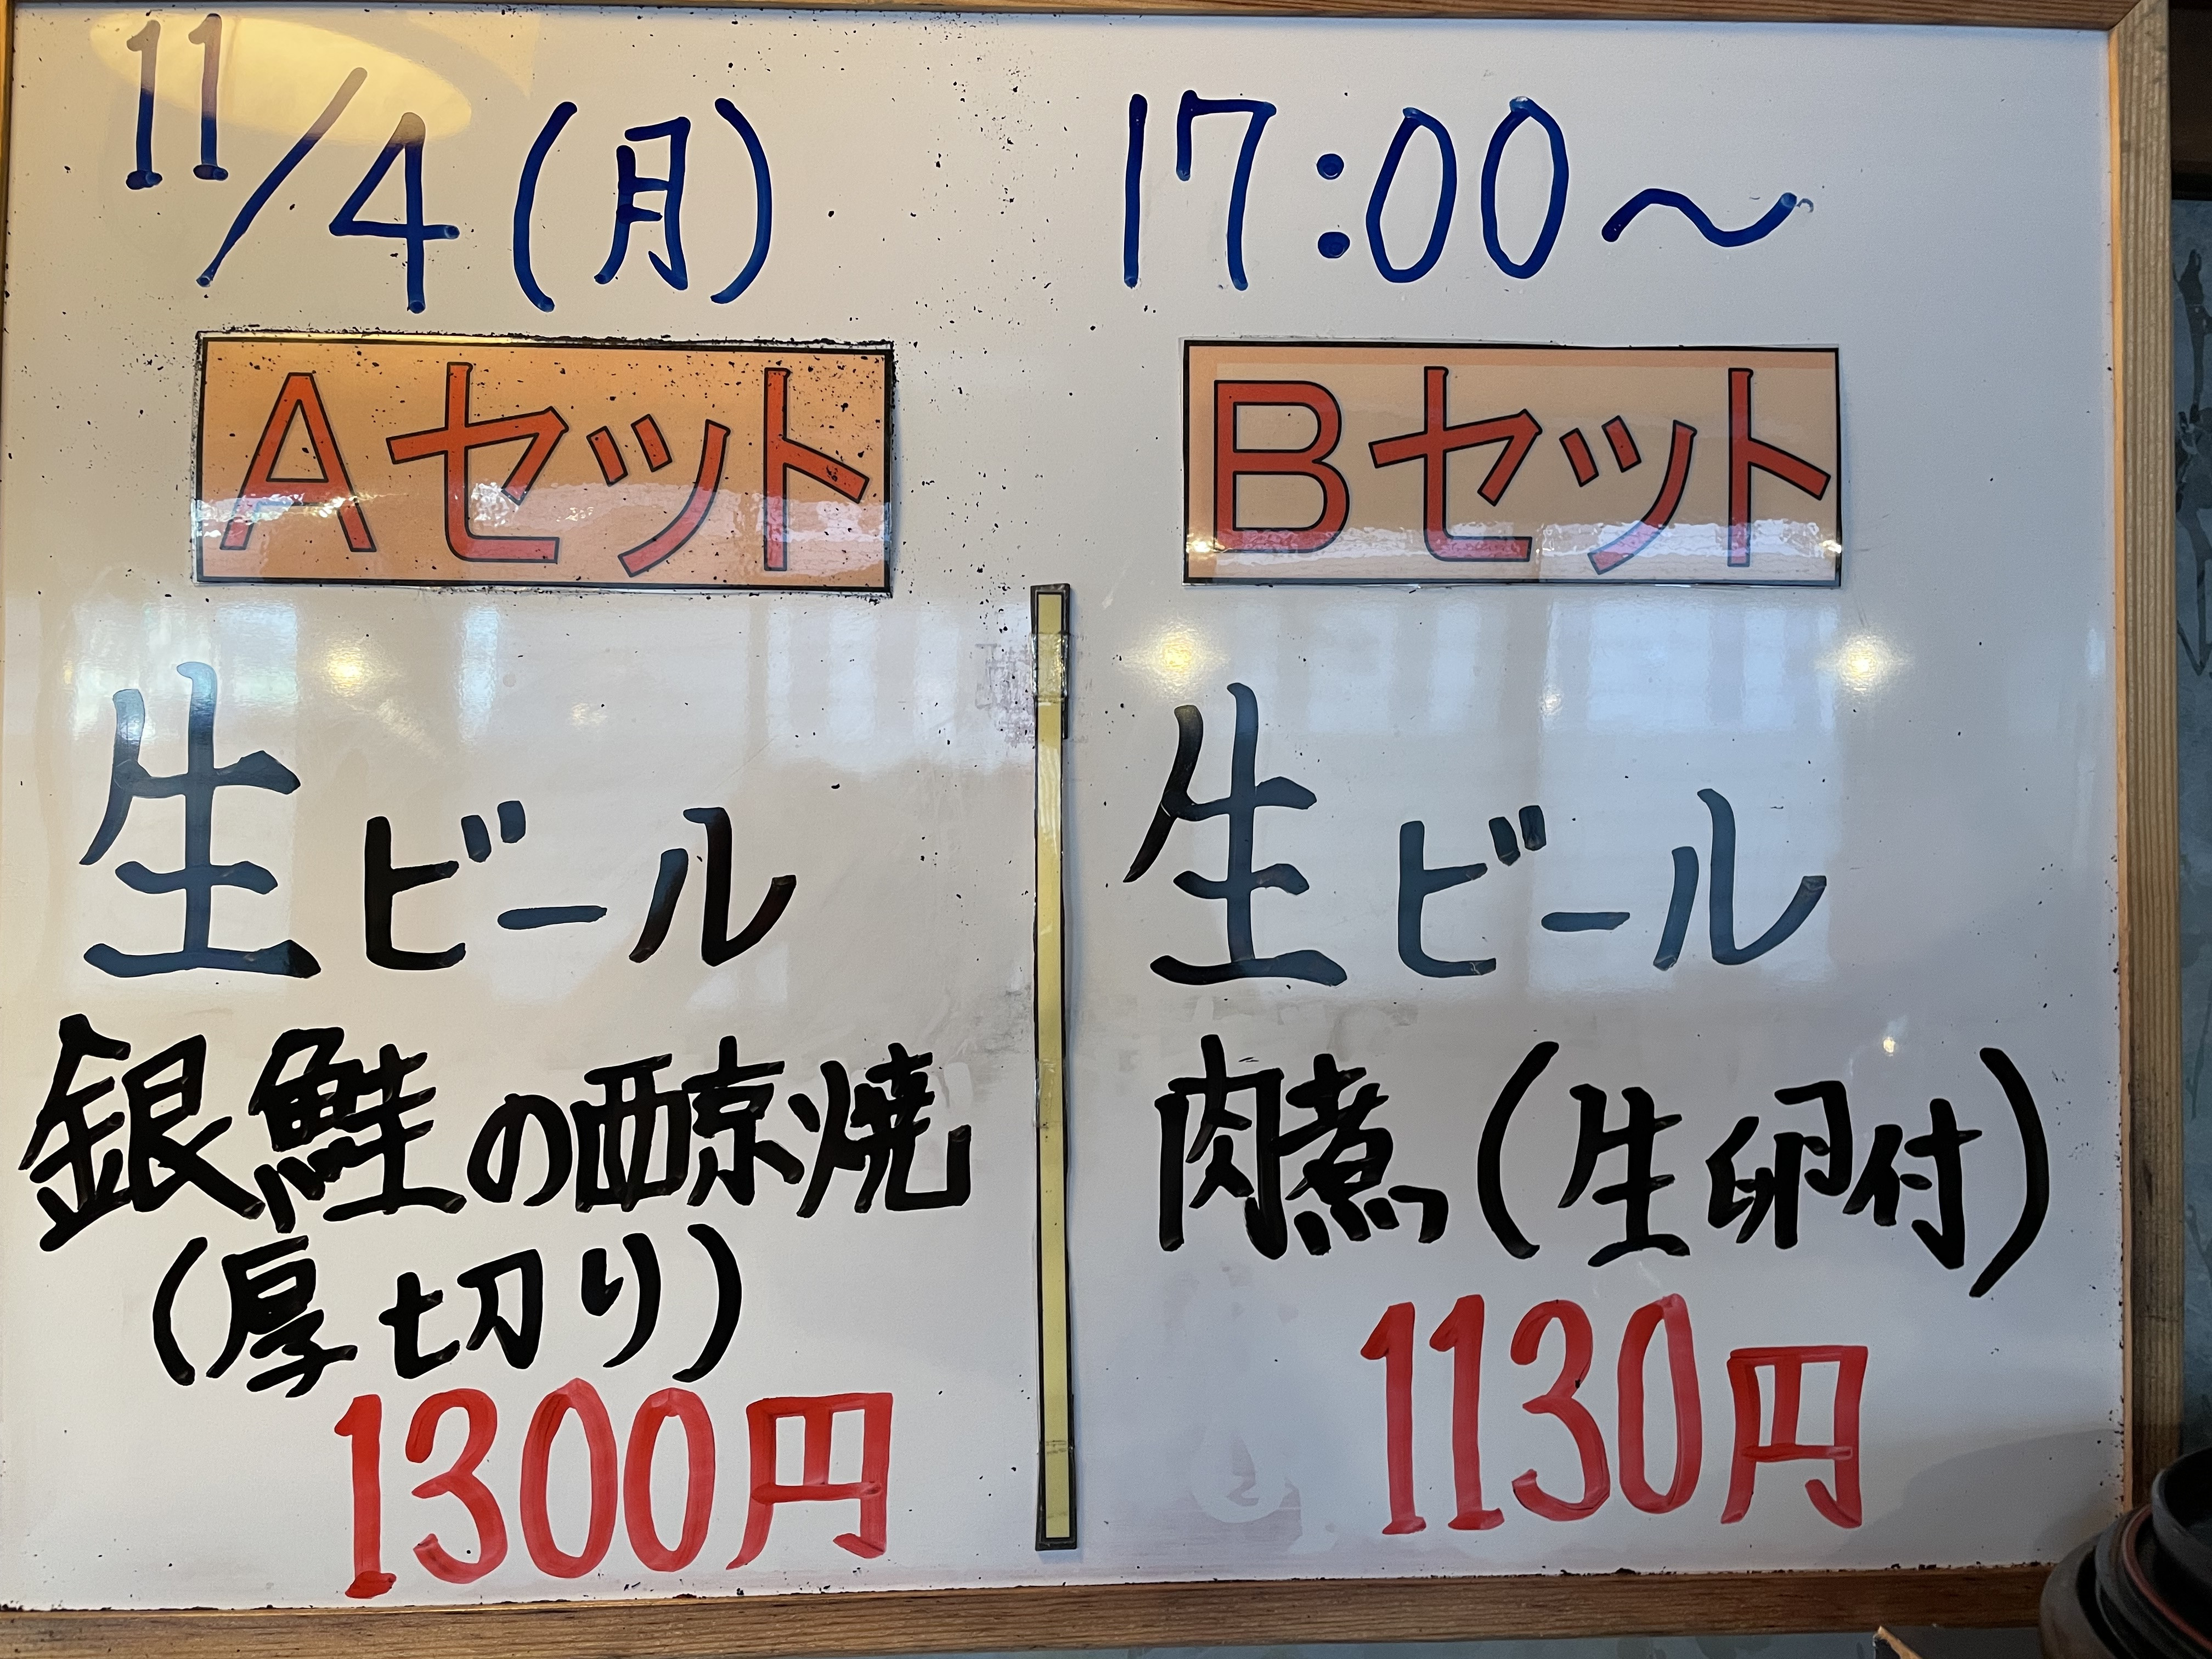 11/4(月) 17:00~
Aセット
生ビール
銀鮭の西京焼
(厚切り)
1300円
Bセット
生ビール
肉煮(生卵付)
1130円